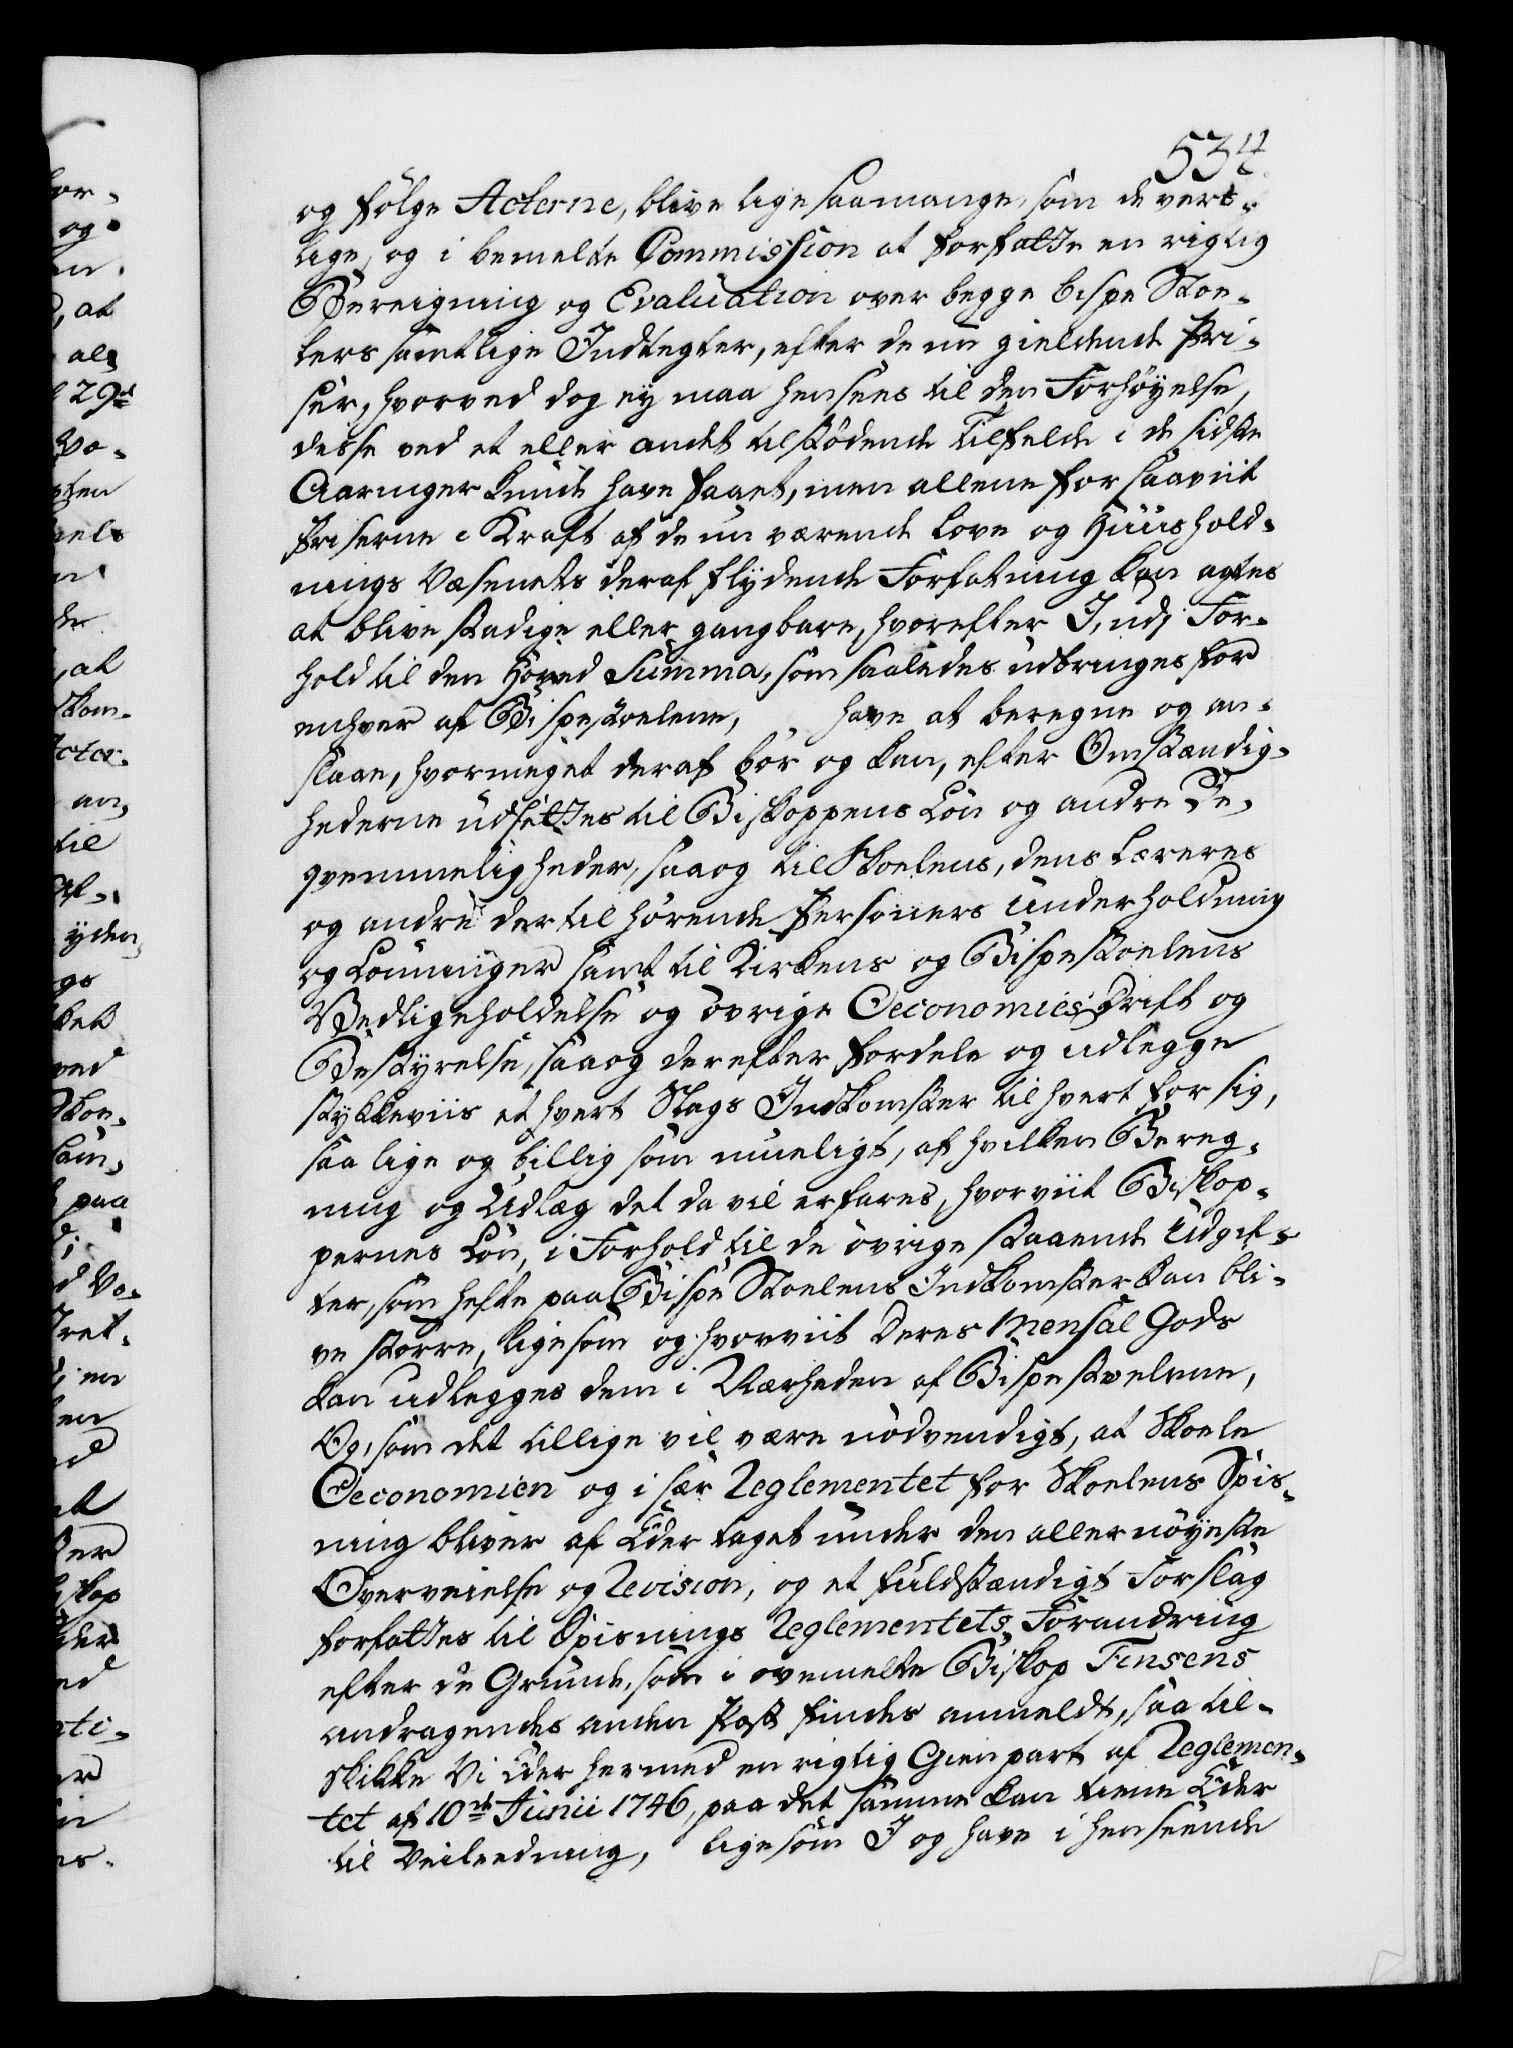 534
og følge Acterne, blive lige saamange, som de verds-
lige, og i bemelte Commission at forfatte en rigtig
Bereigning og Evaluation over begge bispe Stoe-
lers samtlige Indtegter, efter de nu gieldende Pri-
ser, hvorved dog ey maa hensees til den Forhøyelse,
disse ved et eller andet tilstødende Tilfelde i de sidste
Aaringer kunde have faaet, men allene for saaviit
Priserne i Kraft af de nu værende Love og Huushold-
nings Væsenets deraf flydende Forfatning kan agtes
at blive stadige eller gangbare, hvorefter I, udi For-
hold til den Hoved Summa, som saaledes udbringes for
enhver af Bispestoelene, have at beregne og an-
slaae, hvormeget deraf bør og kan, efter Omstændig-
hederne udsættes til Biskoppens Løn og andre Be-
qvemmeligheder, saa og til Skoelens, dens Læreres
og andre dertil hørende Personers Underholdning
og Lønninger samt til Kirkens og Bispestoelens
Vedligeholdelse og øvrige Oeconomies Drift og
Bestyrelse, saa og derefter fordele og udlegge
stykkeviis et hvert Slags Indkomster til hvert for sig,
saa lige og billig som mueligt, af hvilken Bereg-
ning og Udlæg det da vil erfares, hvorviit Biskop-
pernes Løn, i Forhold til de øvrige staaende Udgif-
ter, som hefte paa Bispe Stoelens Indkomster kan bli-
ve større, ligesom og hvorviit deres Mensal Gods
kan udlegges dem i Nærheden af Bispestoelene,
Og, som det tillige vil være nødvendigt, at Skoele
Oeconomien og i sær Reglementet for Skoelens Spis-
ning bliver af Eder taget under den allernøyeste
Overveielse og Revision, og et fuldstændigt Forslag
forfattes til Spisnings Reglementets Forandring
efter de Grunde, som i ovemelte Biskop Finsens
andragendes anden Post findes anmeldt, saa til-
skikke Vi Eder hermed en rigtig Gienpart af Reglemen-
tet af 10de Junii 1746, paa det samme kan tiene Eder
til Veiledning, ligesom I og have i henseende